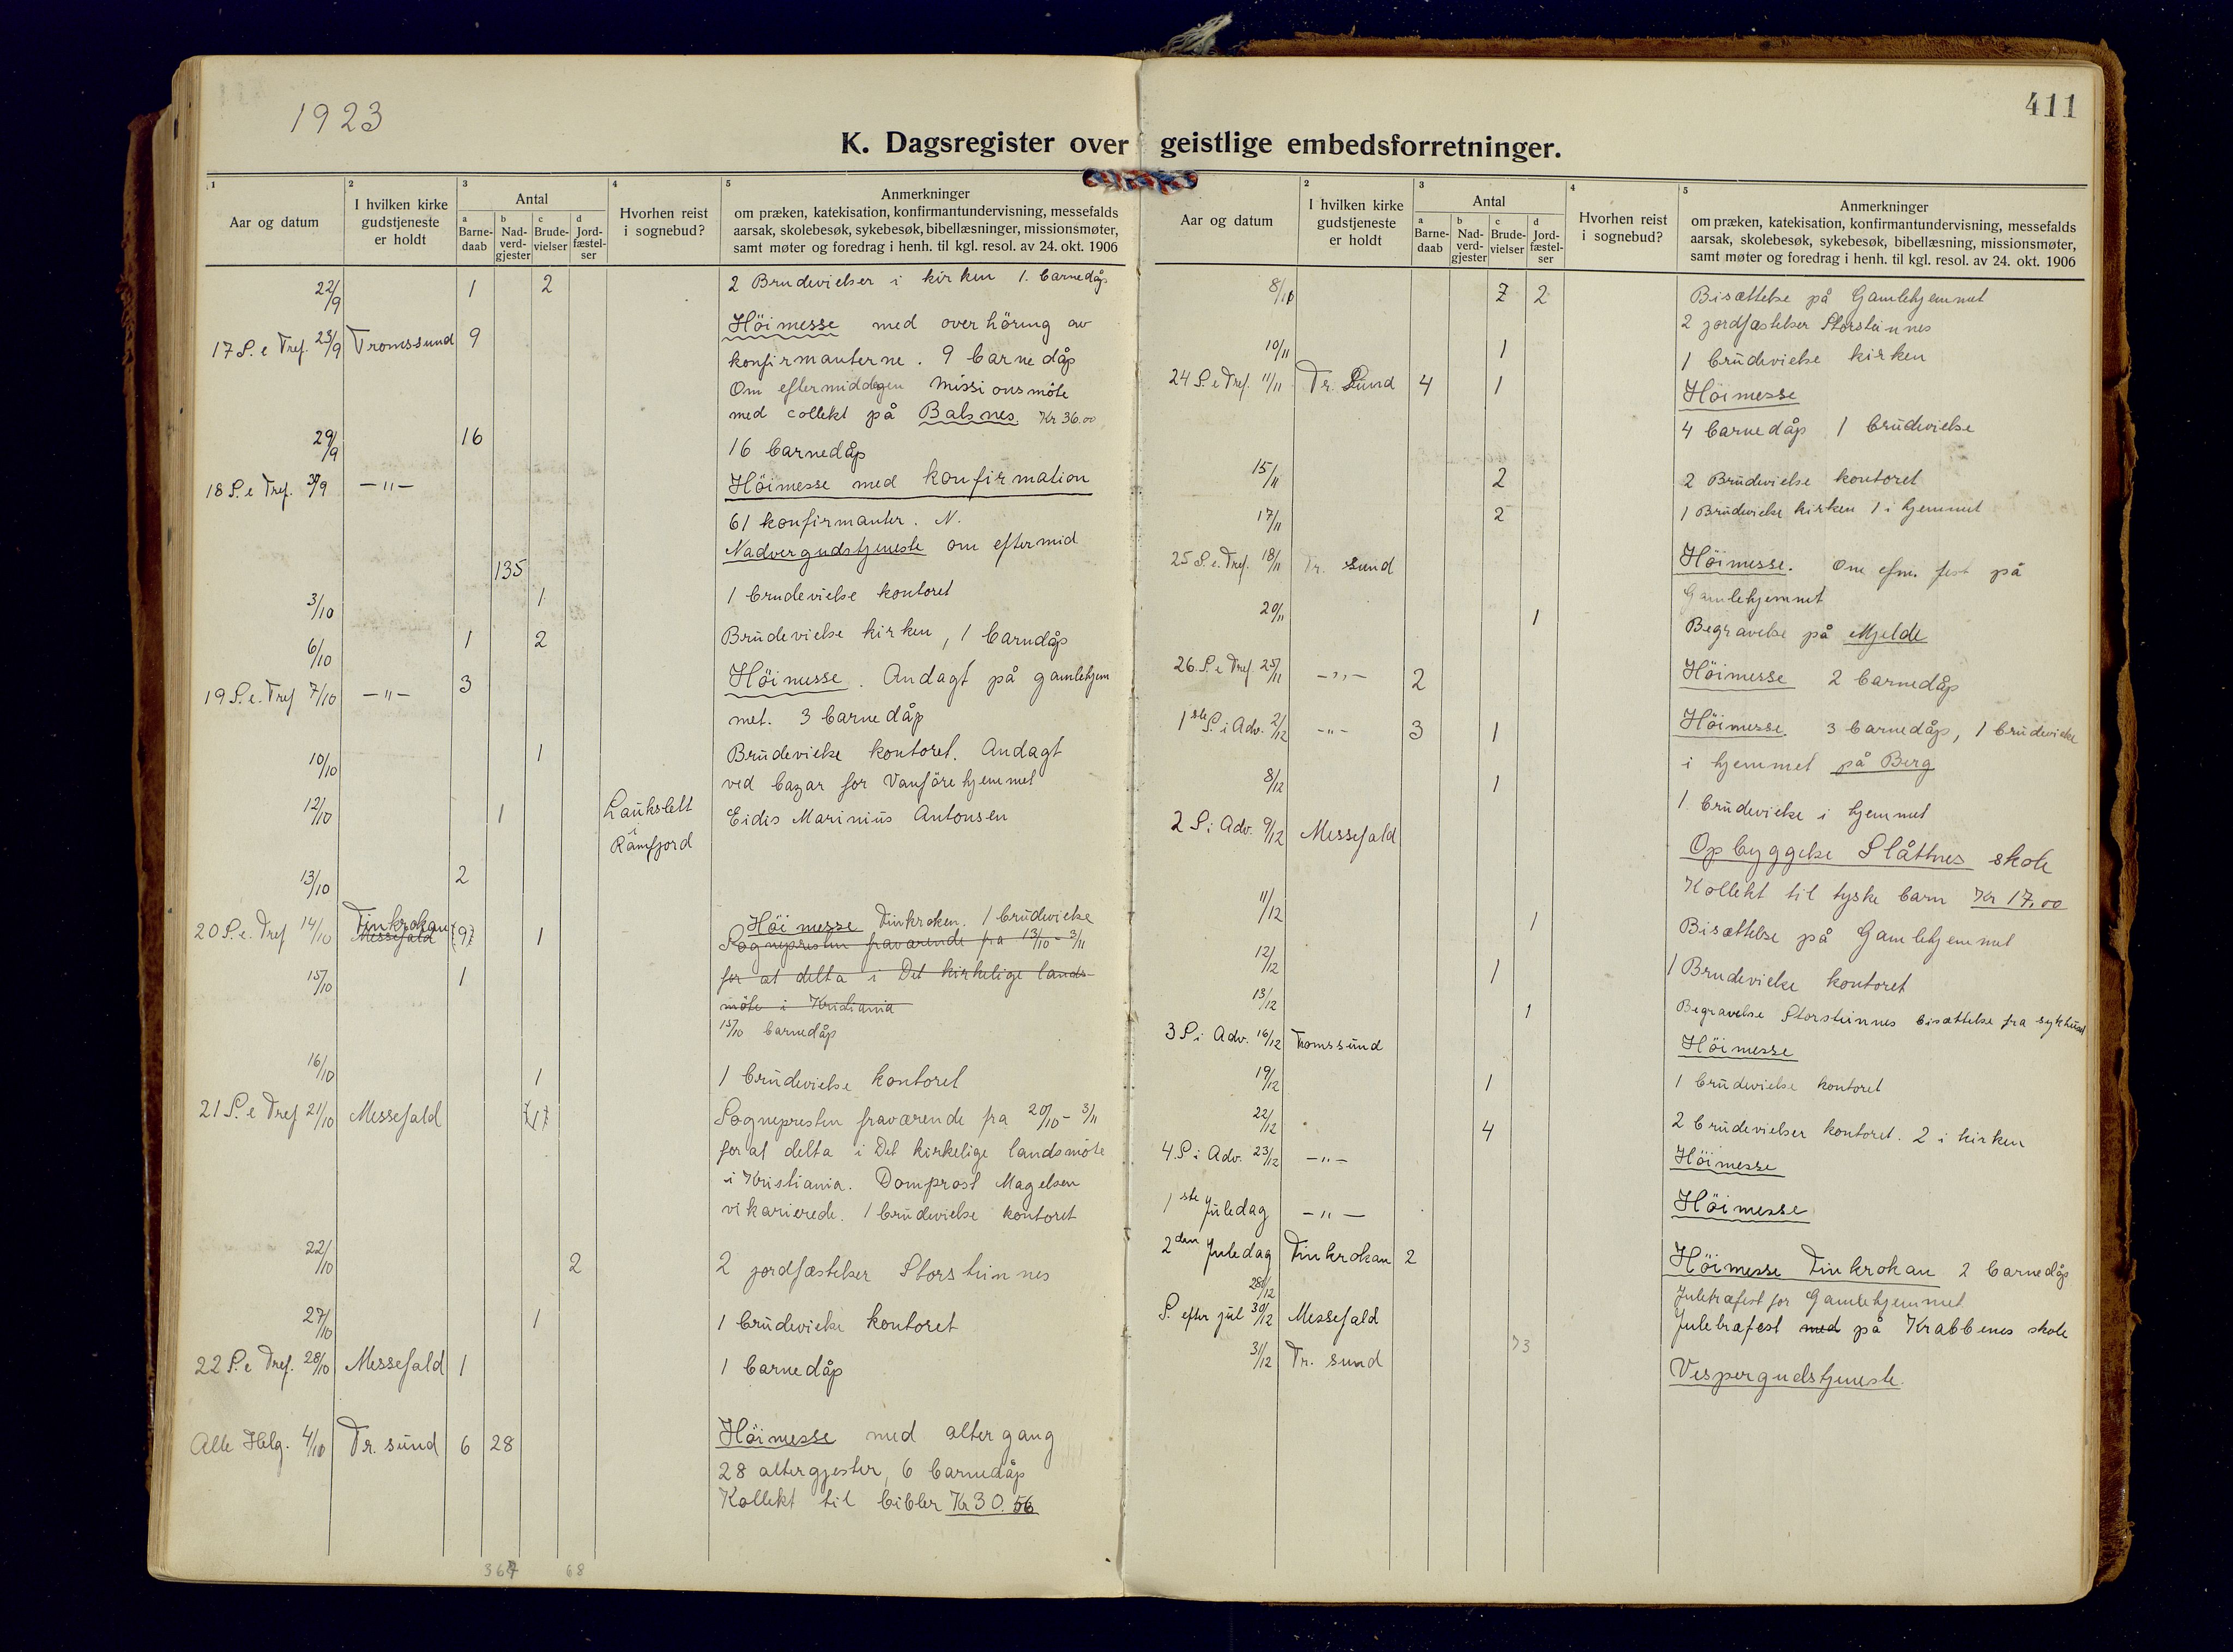 1923
411
K. Dagsregister over geistlige embedsforretninger.
1 2 3 4 5
Aar og datum
I hvilken kirke gudstjeneste er holdt
Antal
a Barne-daab b Nad-verd-gjester c Brude-vielser d Jord-fæstel-ser
Hvorhen reist i sognebud?
Anmerkninger
om præken, katekisation, konfirmantundervisning, messefalds
aarsak, skolebesøk, sykebesøk, bibellæsninger, missionsmøter,
samt møter og foredrag i henh. til kgl. resol. av 24. okt. 1906
22/9 1 2 2 Brudevielser i kirken 1. barnedåp
17 S. e Tref. 23/9 Tromssund 9 Höimesse med overhöring av
konfirmanterne. 9 barnedåp
Om eftermiddagen missionsmöte
med collekt på Balsnes. Kr 36.00
29/9 16 16 barnedåp
18 S. e Tref. 30/9 —"— Höimesse med konfirmation
61 konfirmanter. N.
Nadvergudstjeneste om eftermid
135
3/10 1 1 brudevielse kontoret
6/10 1 2 Brudevielse kirken, 1 barndåp
19 S. e. Tref 7/10 —"— 3 Höimesse. Andagt på gamlehjem
met. 3 barnedåp
10/10 1 Brudevielse kontoret. Andagt
ved bazar for Vanförehjemmet
12/10 1 Laukslett i Ramfjord Eidis Marinius Antonsen
13/10 2
20 S. e. Tref 14/10 Tinkrokan Messefald 9 1 Höimesse Tinkroken. 1 brudevielse
Sognepresten fraværende fra 13/10 - 3/11
for at delta i Det kirkelige lands-
möte i Kristiania
15/10 1 15/10 barnedåp
16/10 1 1 brudevielse kontoret
21 S. e Tref 21/10 Messefald 1 Sognepresten fraværende fra 20/10 - 3/11
for at delta i Det kirkelige landsmöte
i Kristiania. Domprost Magelsen
vikarierede. 1 brudevielse kontoret
22/10 2 2 jordfæstelser Storsteinnes
27/10 1 1 brudevielse kontoret
22 S. e Tref. 28/10 Messefald 1 1 barnedåp
Alle Helg. 4/10 Tr. sund 6 28 Höimesse med altergang
28 altergjester, 6 barnedåp
Kollekt til bibler Kr 30.56
68
Aar og datum
2 3 4 5
I hvilken kirke gudstjeneste er holdt
Antal
a Barne-daab b Nad-verd-gjester c Brude-vielser d Jord-fæstel-ser
Hvorhen reist i sognebud?
Anmerkninger
om præken, katekisation, konfirmantundervisning, messefalds
aarsak, skolebesøk, sykebesøk, bibellæsning, missionsmøter,
samt møter og foredrag i henh. til kgl. resol. av 24. okt. 1906
8/11 2 2 Bisættelse på Gamlehjemmet
2 jordfæstelser Storsteinnes
10/11 1 1 brudevielse kirken
24 S. e Tref. 11/11 Tr. Sund 4 1 Höimesse
4 barnedåp 1 brudevielse
15/11 2 2 Brudevielse kontoret
17/11 2 1 Brudevielse kirken 1 i hjemmet
25 S. e. Tref. 18/11 Tr. sund Höimesse. Om efm. fest på
Gamlehjemmet
20/11 1 Begravelse på Mjelde
26. S. e Tref 25/11 —"— 2 Höimesse 2 barnedåp
1ste S. i Adv. 2/12 —"— 3 1 Höimesse. 3 barnedåp, 1 brudevielse
i hjemmet på Berg
8/12 1 1. brudevielse i hjemmet
2 S i Adv. 9/12 Messefald Opbyggelse Slåttnes skole
Kollekt til tyske barn Kr 17,00
11/12 1 Bisættelse på Gamlehjemmet
12/12 1 1 Brudevielse kontoret
13/12 1 Begravelse Storsteinnes bisættelse fra sykhuset
3 S i Adv. 16/12 Tromssund Höimesse
19/12 1 1 brudevielse kontoret
22/12 4 2 brudevielser kontoret. 2 i kirken
4. S i Adv. 23/12 —"— Höimesse
1ste Juledag —"— Höimesse
2den Juledag Tinkrokan 2 Höimesse Tinkrokan 2 barnedåp
28/12 Juletræfest for Gamlehjemmet
S. efter jul 30/12 Messefald Juletræfest med på Krabbenes skole
73
31/12 Tr. sund Vespergudstjeneste.